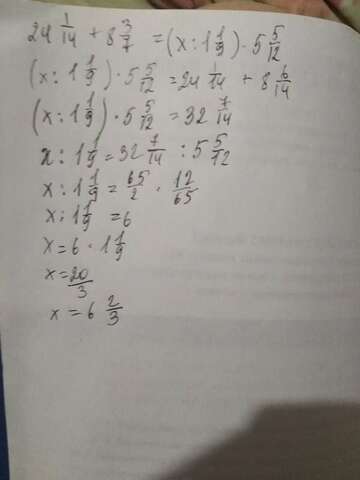 24 1/14 + 8 3/7 = (x : 1 1/9) · 5 5/12
(x : 1 1/9) · 5 5/12 = 24 1/14 + 8 6/14
(x : 1 1/9) · 5 5/12 = 32 7/14
x : 1 1/9 = 32 7/14 : 5 5/12
x : 1 1/9 = 65/2 · 12/65
x : 1 1/9 = 6
x = 6 · 1 1/9
x = 20/3
x = 6 2/3